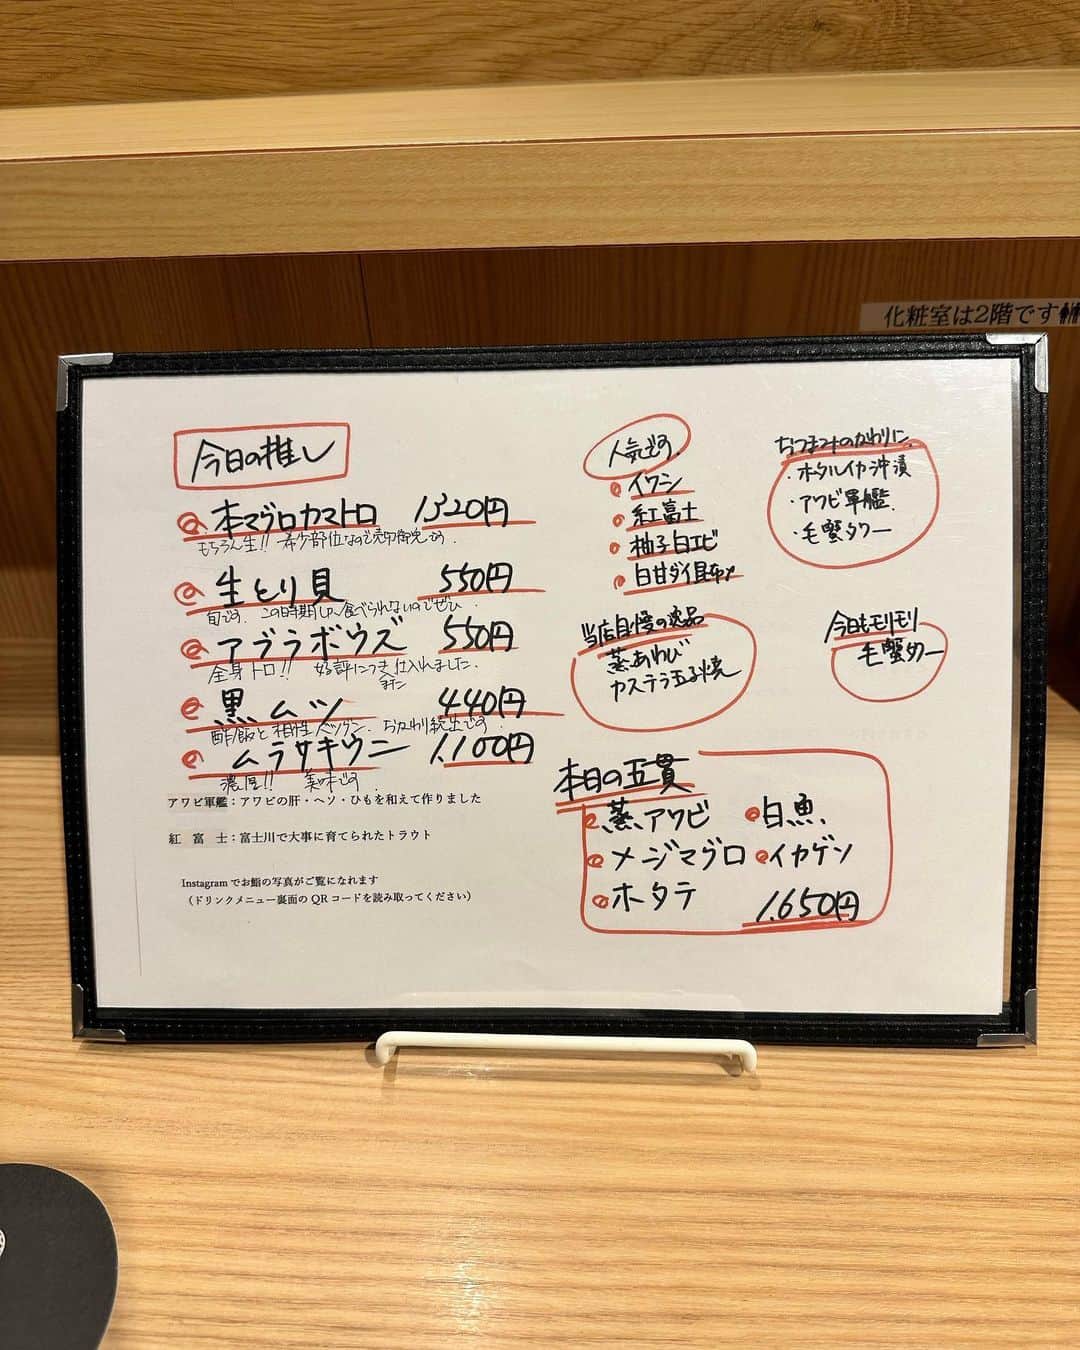 化粧室は2階です
今日の推し
本マグロカマトロ 1320円
もちろん生!! 希少部位なので売切御免です。
生とり貝 550円
旬です。この時期しか食べられないのでぜひ。
アブラボウズ 550円
全身トロ!! 好評につき また 仕入れました。
黒ムツ 440円
酢飯と相性バツグン。おかわり続出です。
ムラサキウニ 1,100円
濃厚!! 美味です。
アワビ軍艦：アワビの肝・ヘソ・ひもを和えて作りました
紅 富 士：富士川で大事に育てられたトラウト
Instagramでお鮨の写真がご覧になれます
（ドリンクメニュー裏面のQRコードを読み取ってください）
人気です。
イワシ
紅富士
柚子白エビ
白甘ダイ昆布〆
おつまみのかわりに。
・ホタルイカ沖漬
・アワビ軍艦
・毛蟹タワー
当店自慢の逸品
蒸あわび
カステラ玉子焼
今日もモリモリ
毛蟹タワー
本日の五貫
蒸アワビ 白魚
メジマグロ イカゲソ
ホタテ 1,650円